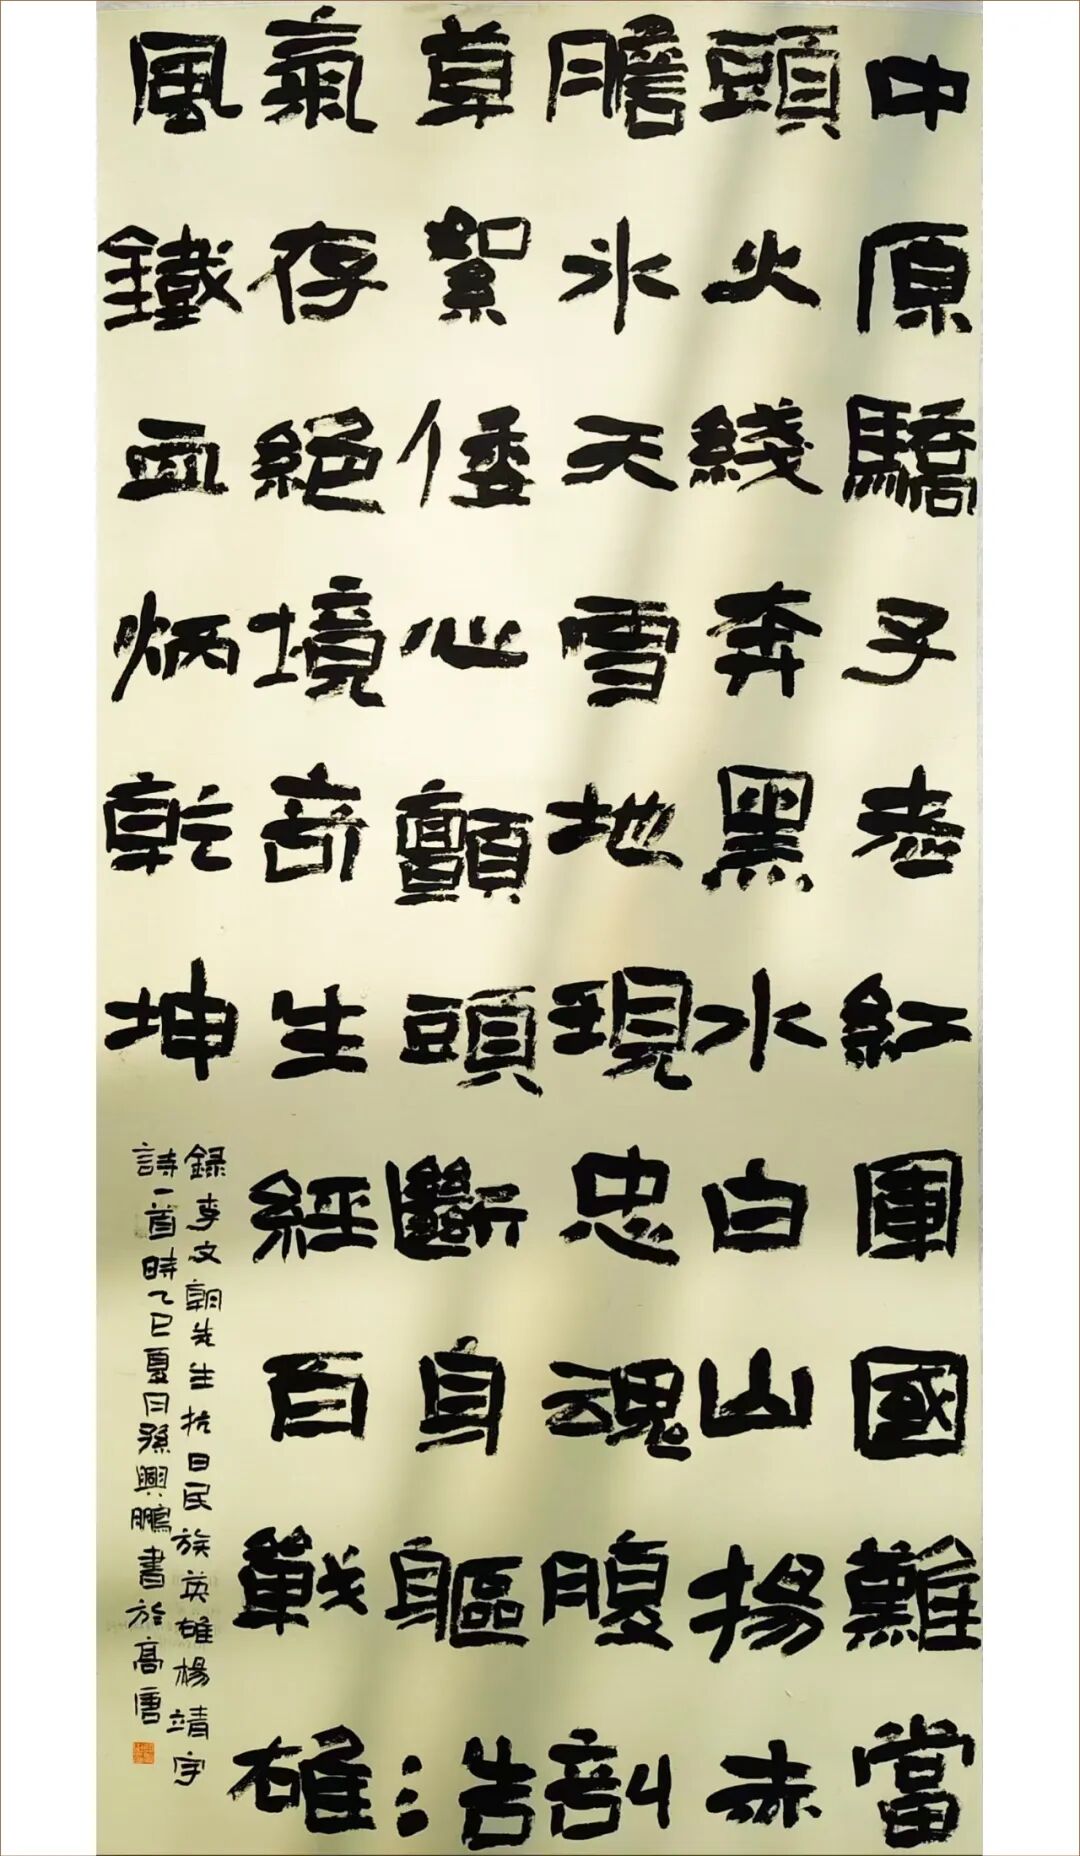 中原驕子老紅軍國難當
頭火綫奔黑水白山揚赤
膽氷天雪地現忠魂腹剖
草絮倭心顫頭斷身軀浩
氣存絕境奇生經百戰雄
風鐵血炳乾坤
錄李文朝先生抗日民族英雄楊靖宇
詩一首時乙巳夏月孫興鵬書於高唐